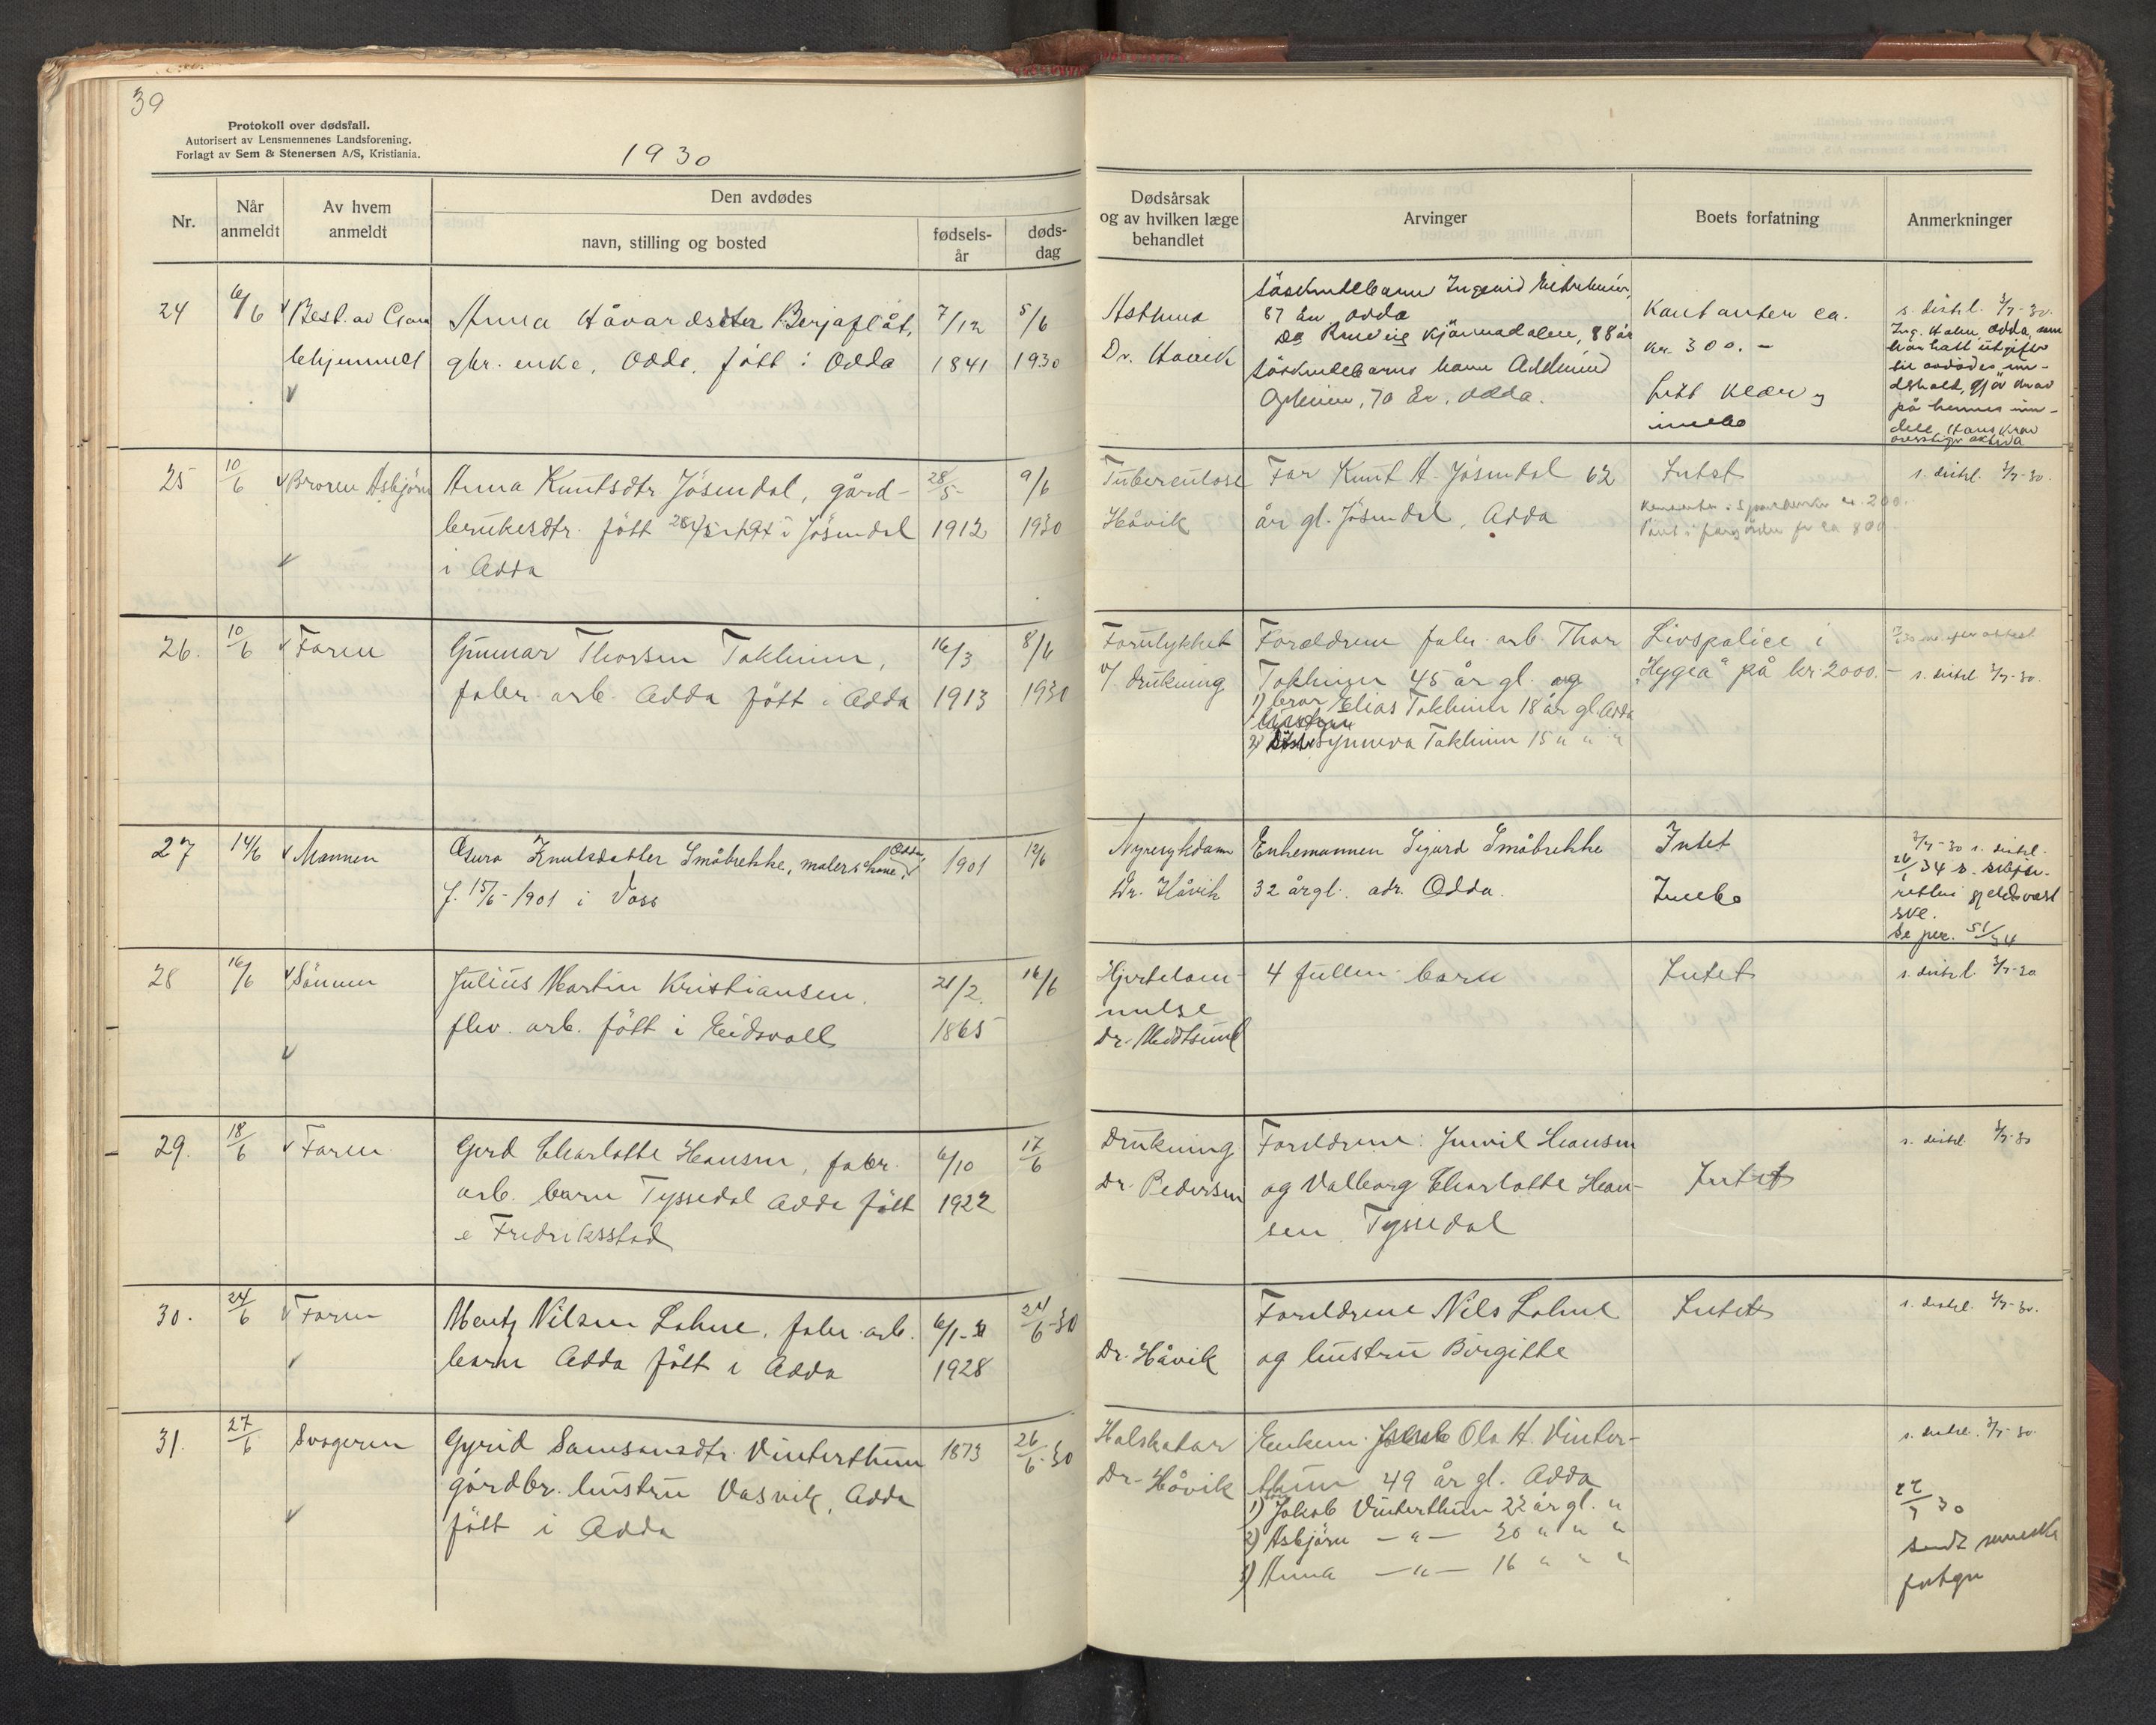 39
Protokoll over dødsfall.
Autorisert av Lensmennenes Landsforening.
Forlagt av Sem & Stenersen A/S, Kristiania.
1930
Nr.
Når anmeldt
Av hvem anmeldt
Den avdødes
navn, stilling og bosted
fødsels-år
døds-dag
Dødsårsak
og av hvilken læge
behandlet
Arvinger
Boets forfatning
Anmerkninger
24
6/6
Best. av Gam
lehjemmet
Anna Håvardsdtr Berjaflåt,
gbr. enke, Odda, född i Odda
7/12
1841
5/6
1930
Astma
Dr. Håvik
söskendebarn Ingerid Eitrheim,
87 år Odda
88 år
söskendebarns barn Admund
70 år, Odda.
Kontanter ca.
kr. 300.-
litt klær og
innbo
s. distr. 3/7-30.
Odda, som
har hatt utgifter
på hennes
25
10/6
Broren Asbjörn
Anna Knutsdtr Jösendal, gård-
brukesdtr. född i Jösendal
i Odda
28/5
1912
9/6
1930
Tuberculose
Håvik
Far Knut A. Jösendal 62
år gl. Jösendal, Odda
Intet
s. distr. 3/7-30.
26.
10/6
Faren
Gunnar Thorsen Tokheim,
fabr. arb. Odda född i Odda
16/3
1913
8/6
1930
Forulykket
v/ drukning
Foreldrene fabr. arb. Thor
Tokheim 45 år gl. og
1) bror Elias Tokheim 18 år gl. Odda
2) Synneva Tokheim 15 " " "
Livspolice i
"Hygea" på kr. 2000.-
s. distr. 3/7-30.
27
14/6
Mannen
Knutsdatter Småbrekke, malers kone, Odda
f. 15/6-1901 i Voss
1901
12/6
Nyresykdom
Dr. Håvik
Enkemannen Sigurd Småbrekke
32 årgl. adr. Odda.
Intet
Innbo
3/7-30 s. distr.
28
16/6
Sönnen
Julius Martin Kristiansen.
arb. född i Eidsvoll
21/2.
1865
16/6
Hjertelam-
melse
4 barn
Intet
s. distr. 3/7-30
29.
18/6
Faren
Gerd Charlotte Hansen, fabr.
arb. barn Tyssedal Odda född
i Fredriksstad
6/10
1922
17/6
Drukning
Dr. Pedersen
Foreldrene: Hansen
og Valborg Charlotte Han-
sen, Tyssedal
Intet
s. distr. 3/7-30
30.
24/6
Faren
Mentz Nilsen Lohne, fabr. arb.
barn Odda född i Odda
6/1
1928
24/6-30
Dr. Håvik
Foreldrene Nils Lohne
og hustru Birgitte
Intet
s. distr. 3/7-30.
31.
27/6
Svogeren
Gyrid Samsonsdtr. Vinterthun
gårdbr. hustru Vasvik, Odda
född i Odda
1873
26/6-30
Halskatar
Dr. Håvik
Enkem. Ola H. Vinter-
thun 49 år gl. Odda
1) Jakob Vinterthun 22 år gl. "
2) Asbjörn —"— 20 " " "
3) Anna —"— 16 " " "
s. distr. 3/7-30.
30